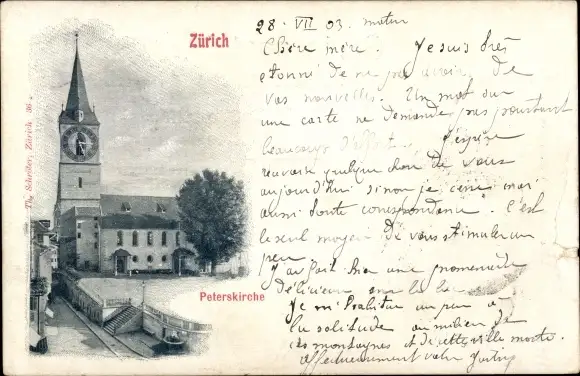 Zürich
Th. Schröter, Zürich 36
Peterskirche
28. VII 03. matin
Chère mère. Je suis très
étonné de ne pas avoir de
vos nouvelles. Un mot sur
une carte ne demande pas pourtant
beaucoup d'effort. J'espère
recevoir quelque chose de vous
aujourd'hui sinon je cesse moi
aussi toute correspondance. C'est
le seul moyen de vous stimuler un
peu
J'ai fait hier une promenade
délicieuse sur le lac
Je m'habitue un peu à
la solitude au milieu de
ces montagnes et de cette ville morte.
Affectueusement votre